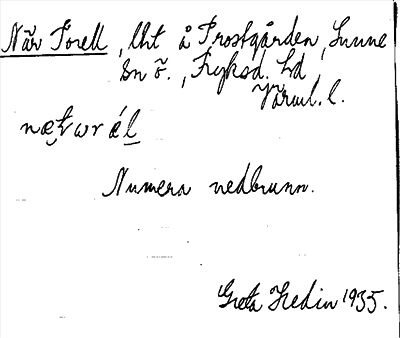 När Torell, lht å Prostgården, Sunne
sn ö., Fryksd. hd
Värml. l.
Numera nedbrunn.
Greta Hedin 1935.